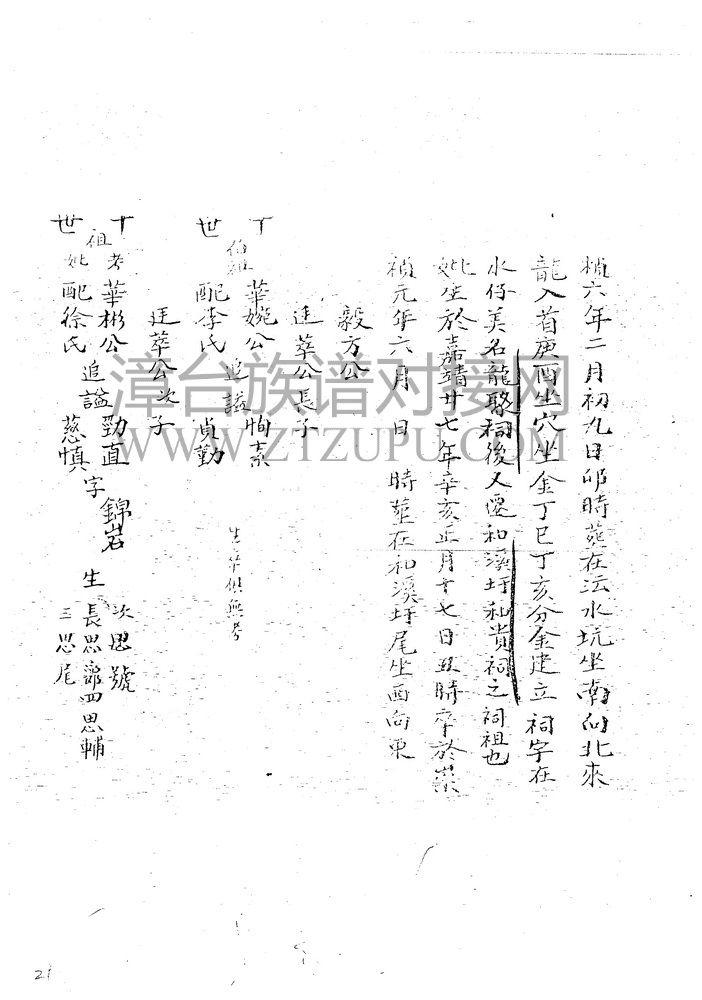 楨六年二月初九日卯時葬在沄水坑坐南向北來
龍入首庚酉坐穴坐金丁巳丁亥分金建立祠字在
水仔美名龍聚祠後又遷和溪圩和貴祠之祠祖也
妣生於嘉靖廿七年辛亥正月十七日丑時卒於崇
禎元年六月 日 時葬在和溪圩尾坐酉向東
毅方公
廷華公長子
十世 伯祖 華婉公 配李氏 追謚 恂素 貞勤 生卒俱無考
廷華公次子
十世 祖 考華彬公 妣配徐氏 追謚 勁直 慈慎 字錦岩 生 長思 次思號 三思尾 四思輔
漳台族谱对接网
WWW.ZTZUPU.COM
21